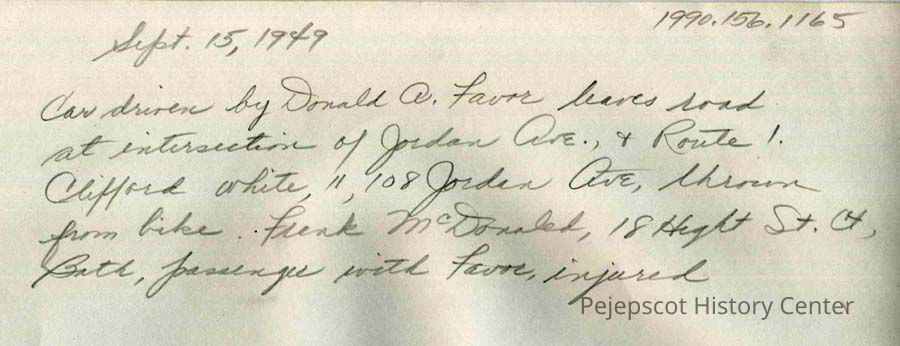 1990.156.1165
Sept. 15, 1949
Car driven by Donald A. Favor leaves road
at intersection of Jordan Ave., & Route 1.
Clifford White, 11, 108 Jordan Ave, thrown
from bike. Frank McDonald, 18 Hight St. Ct,
Bath, passenger with Favor, injured
Pejepscot History Center